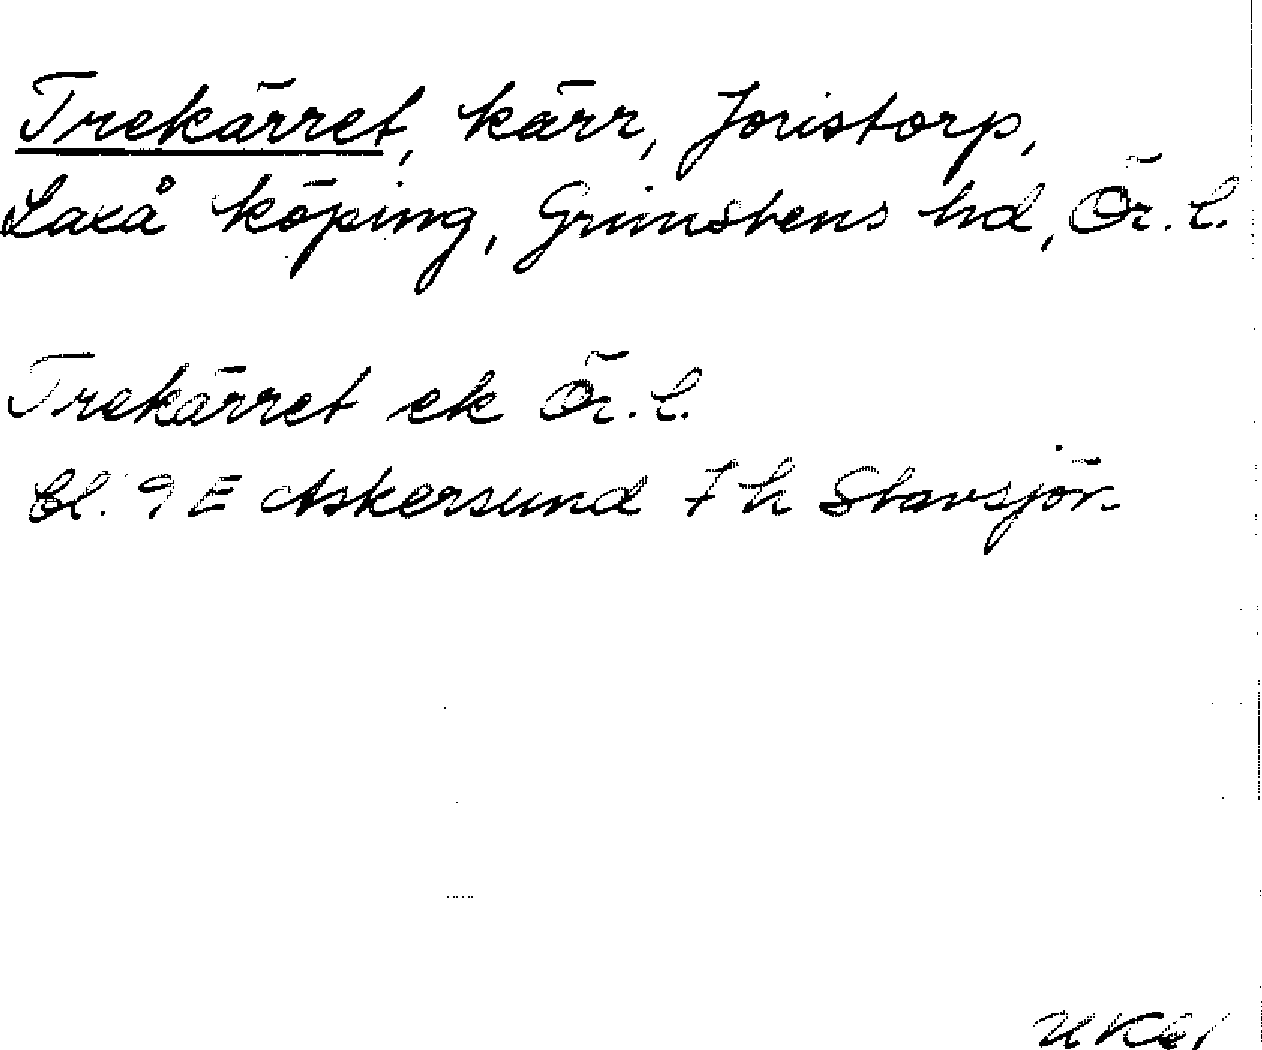 Trekärret, kärr, Joristorp,
Laxå köping, Grimstens hd, Ör. l.
Trekärret ek Ör. l.
bl. 9 E Askersund 7 h Stavsjön